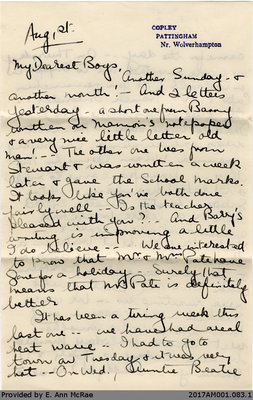 Aug 1st.
COPLEY
PATTINGHAM
Nr. Wolverhampton
My Dearest Boys,
Another Sunday - &
another month! - And 2 letters
yesterday - a short one from
written on notepaper
& a very nice little letter old
man! - - The other one was from
Stewart & was written a week
later & gave the School marks.
It looks like you've both done
fairly well - Is the teacher
pleased with you? - - And
writing is improving a little
I do believe - - We are interested
to know that Mr & Mrs Pate have
gone for a holiday - Surely that
means that Mr Pate is definitely
better
It has been a tiring week this
last one - - we have had a real
heat wave - I had to go to
town on Tuesday & it was very
hot - - On Wed, Auntie Beatie
Provided by E. Ann McRae
2017AM001.083.1